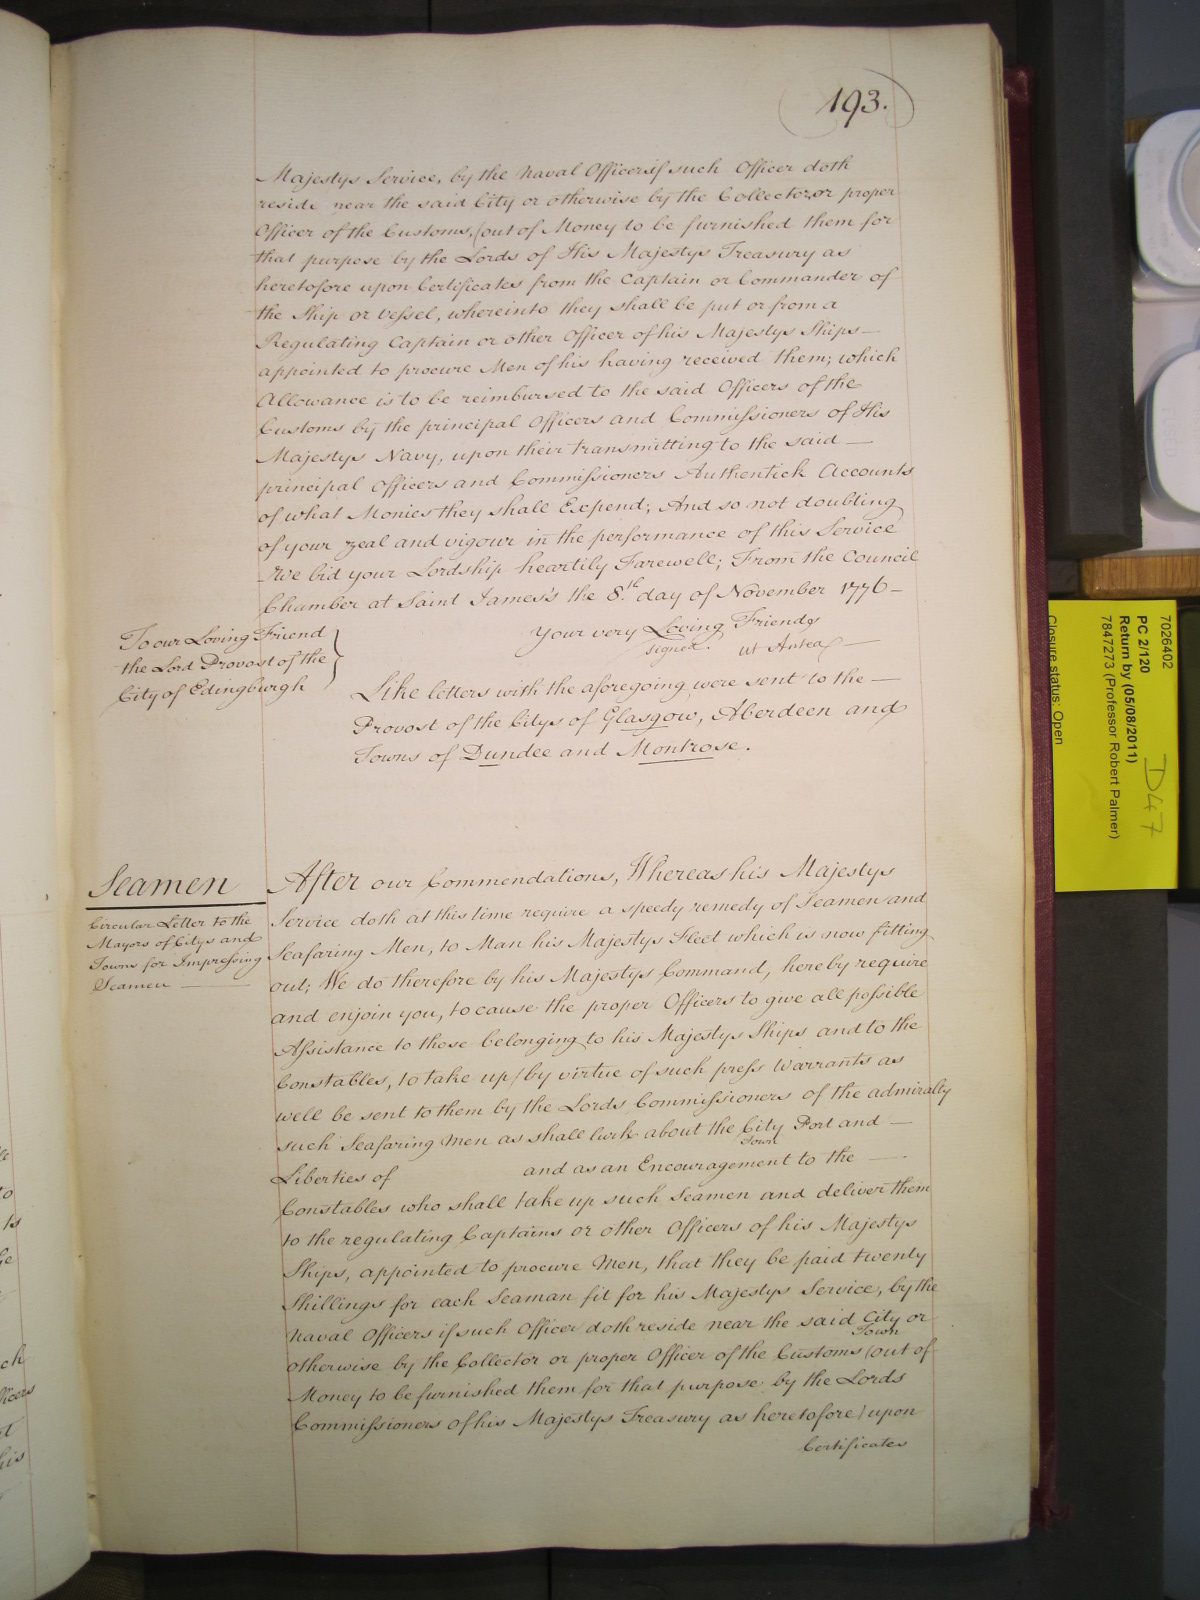 193.
Majestys Service, by the Naval Officers if such Officer doth
reside near the said City or otherwise by the Collector, or proper
Officer of the Customs, (out of Money to be furnished them for
that purpose by the Lords of His Majestys Treasury as
heretofore upon Certificates from the Captain or Commander of
the Ship or Vessel, whereinto they shall be put or from a
Regulating Captain or other Officer of his Majestys Ships —
appointed to procure Men of his having received them; which
Allowance is to be reimbursed to the said Officers of the
Customs by the principal Officers and Commissioners of His
Majestys Navy, upon their transmitting to the said —
principal Officers and Commissioners Authentick Accounts
of what Monies they shall Expend; And so not doubting
of your zeal and vigour in the performance of this Service
We bid your Lordship heartily Farewell; From the Council
Chamber at Saint James's the 8.th day of November 1776 —
Your very Loving Friends
signed. ut Antea —
To our Loving Friend
the Lord Provost of the
City of Edingburgh
Like letters with the aforegoing were sent to the —
Provost of the Citys of Glasgow, Aberdeen and
Towns of Dundee and Montrose.
Seamen
Circular Letter to the
Mayors of Citys and
Towns for Impressing
Seamen —
After our Commendations, Whereas his Majestys
Service doth at this time require a speedy remedy of Seamen and
Seafaring Men, to Man his Majestys Fleet which is now fitting
out; We do therefore by his Majestys Command, hereby require
and enjoin you, to cause the proper Officers to give all possible
Assistance to those belonging to his Majestys Ships and to the
Constables, to take up (by virtue of such press Warrants as
well be sent to them by the Lords Commissioners of the admiralty
such Seafaring Men as shall lurk about the City Port and —
Town
Liberties of and as an Encouragement to the —
Constables who shall take up such Seamen and deliver them
to the regulating Captains or other Officers of his Majestys
Ships, appointed to procure Men, that they be paid twenty
Shillings for each Seaman fit for his Majestys Service, by the
Naval Officers if such Officer doth reside near the said City or
Town
otherwise by the Collector or proper Officer of the Customs (out of
Money to be furnished them for that purpose by the Lords
Commissioners of his Majestys Treasury as heretofore) upon
Certificates
7026402
PC 2/120
Return by (05/08/2011)
7847273 (Professor Robert Palmer)
Closure status: Open
D47